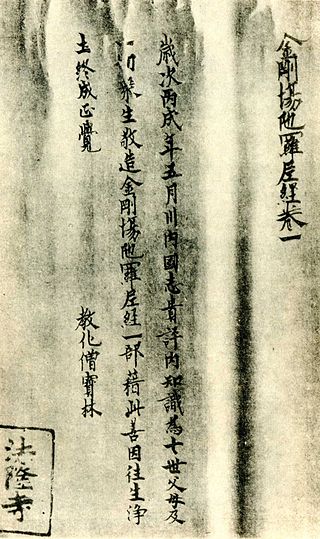 金剛場陁羅尼経卷一
歳次丙戌年五月川内國志貴評内知識為七世父母及
一切衆生敬造金剛場陁羅尼経一部藉此善因往生浄
土終成正覺
教化僧寶林
法隆寺